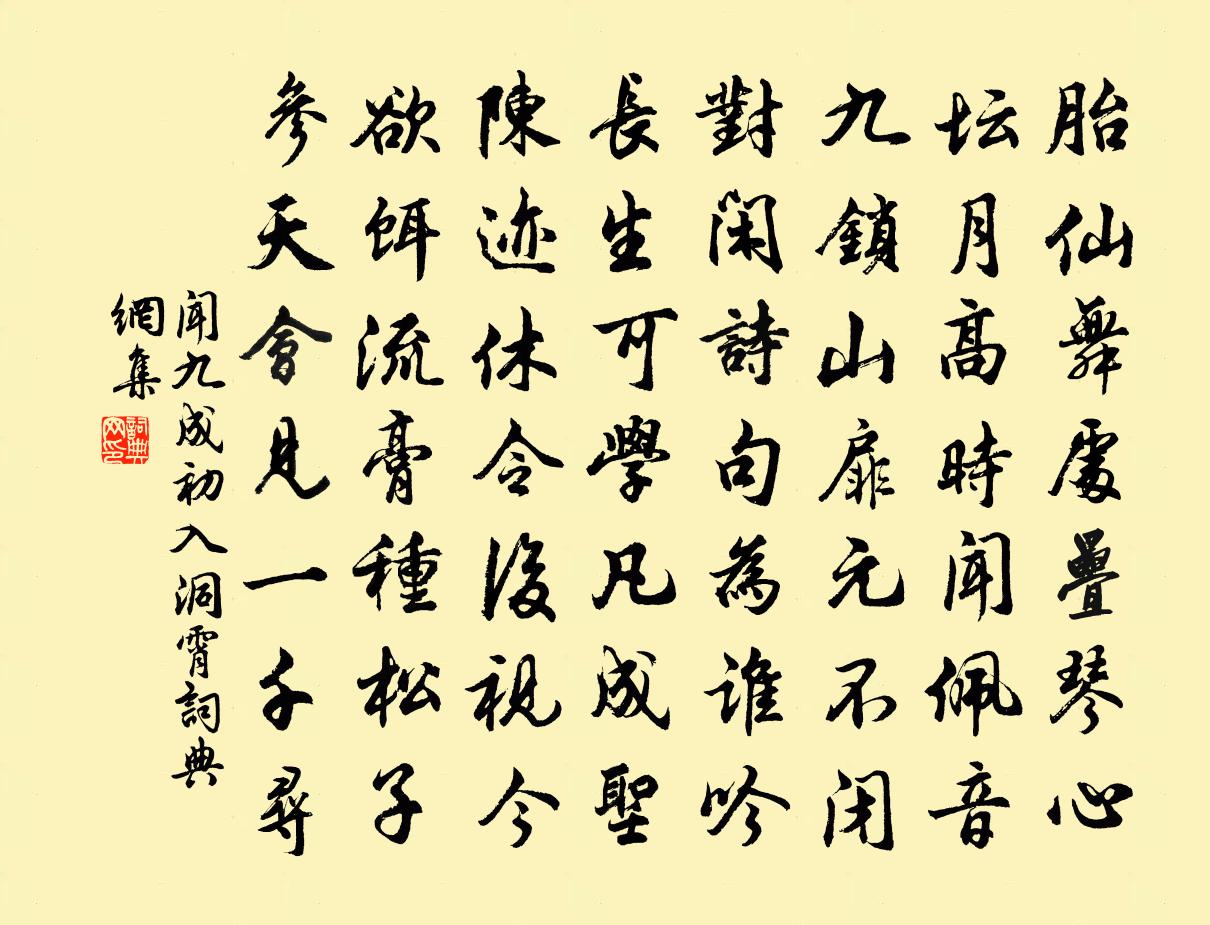 胎仙舞處疊琴心
坛月高時闻佩音
九鎖山扉元不闭
對闲詩句為谁吟
長生可學凡成聖
陳迹休令後視今
欲饵流膏種松子
參天會見一千尋
闻九成初入洞霄詞典
網集
詞典
网印